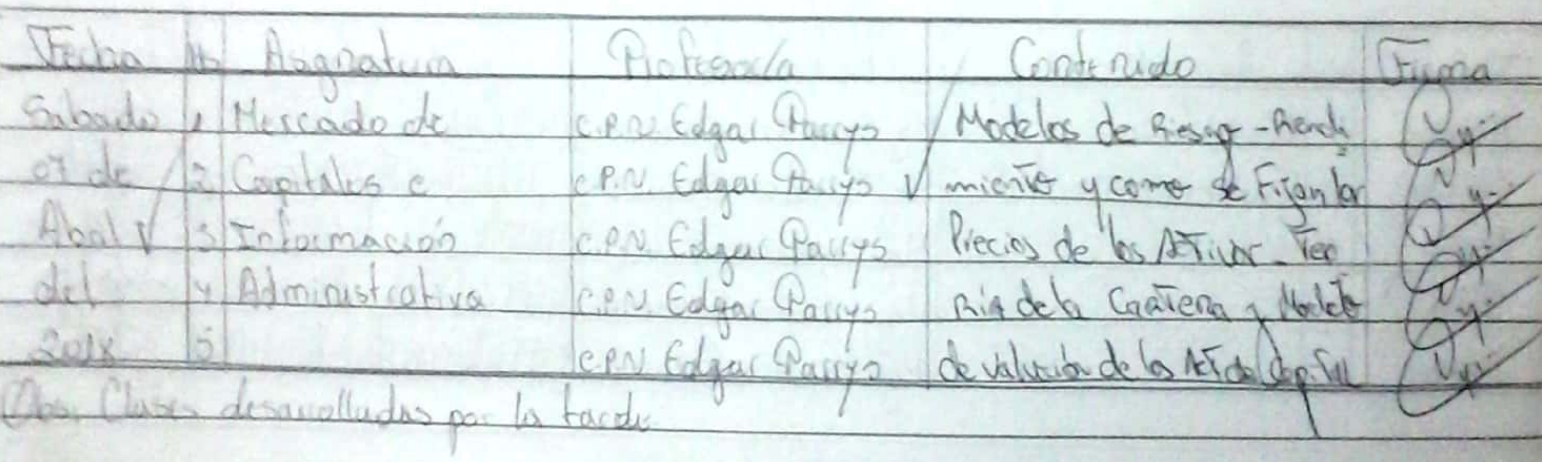 Fecha Hs Asignatura Profesor/a Contenido Firma
Sabado 1 Mercado de C.P.N. Edgar Parrys Modelos de Riesgo - Rendi
07 de 2 Capitales e C.P.N. Edgar Parrys miento y como se Fijan los
Abril 3 Información C.P.N. Edgar Parrys Precios de los Activos - Teo
del 4 Administrativa C.P.N. Edgar Parrys Ria de la Cartera y Modelo
2018 5 C.P.N. Edgar Parrys de valuación de los Act. de Capital
Obs. Clases desarrolladas por la tarde